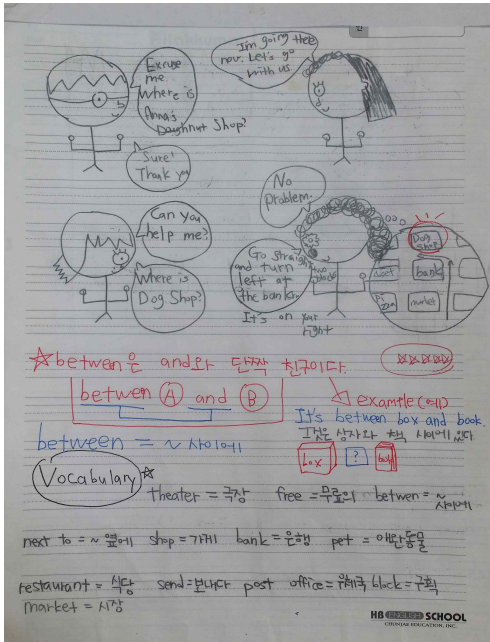 Excuse
me
Where is
Anna's
Doughnut Shop?
I'm going there
now. Let's go
with us
Sure!
Thank you
Can you
help me?
No
problem.
Where is
Dog Shop?
Go straight
and turn
left at
the bank.
It's on your
right
Dog
Shop
bank
market
☆ betwen은 and와 단짝 친구이다.
betwen Ⓐ and Ⓑ
example(예)
It's between box and book.
그것은 상자와 책 사이에 있다
box
?
book
between = ~ 사이에
Vocabulary ☆
theater = 극장 free = 무료의 betwen = ~ 사이에
next to = ~ 옆에 shop = 가게 bank = 은행 pet = 애완동물
restaurant = 식당 send = 보내다 post office = 우체국 block = 구획
market = 시장
HB ENGLISH SCHOOL
CHUNJAE EDUCATION, INC.